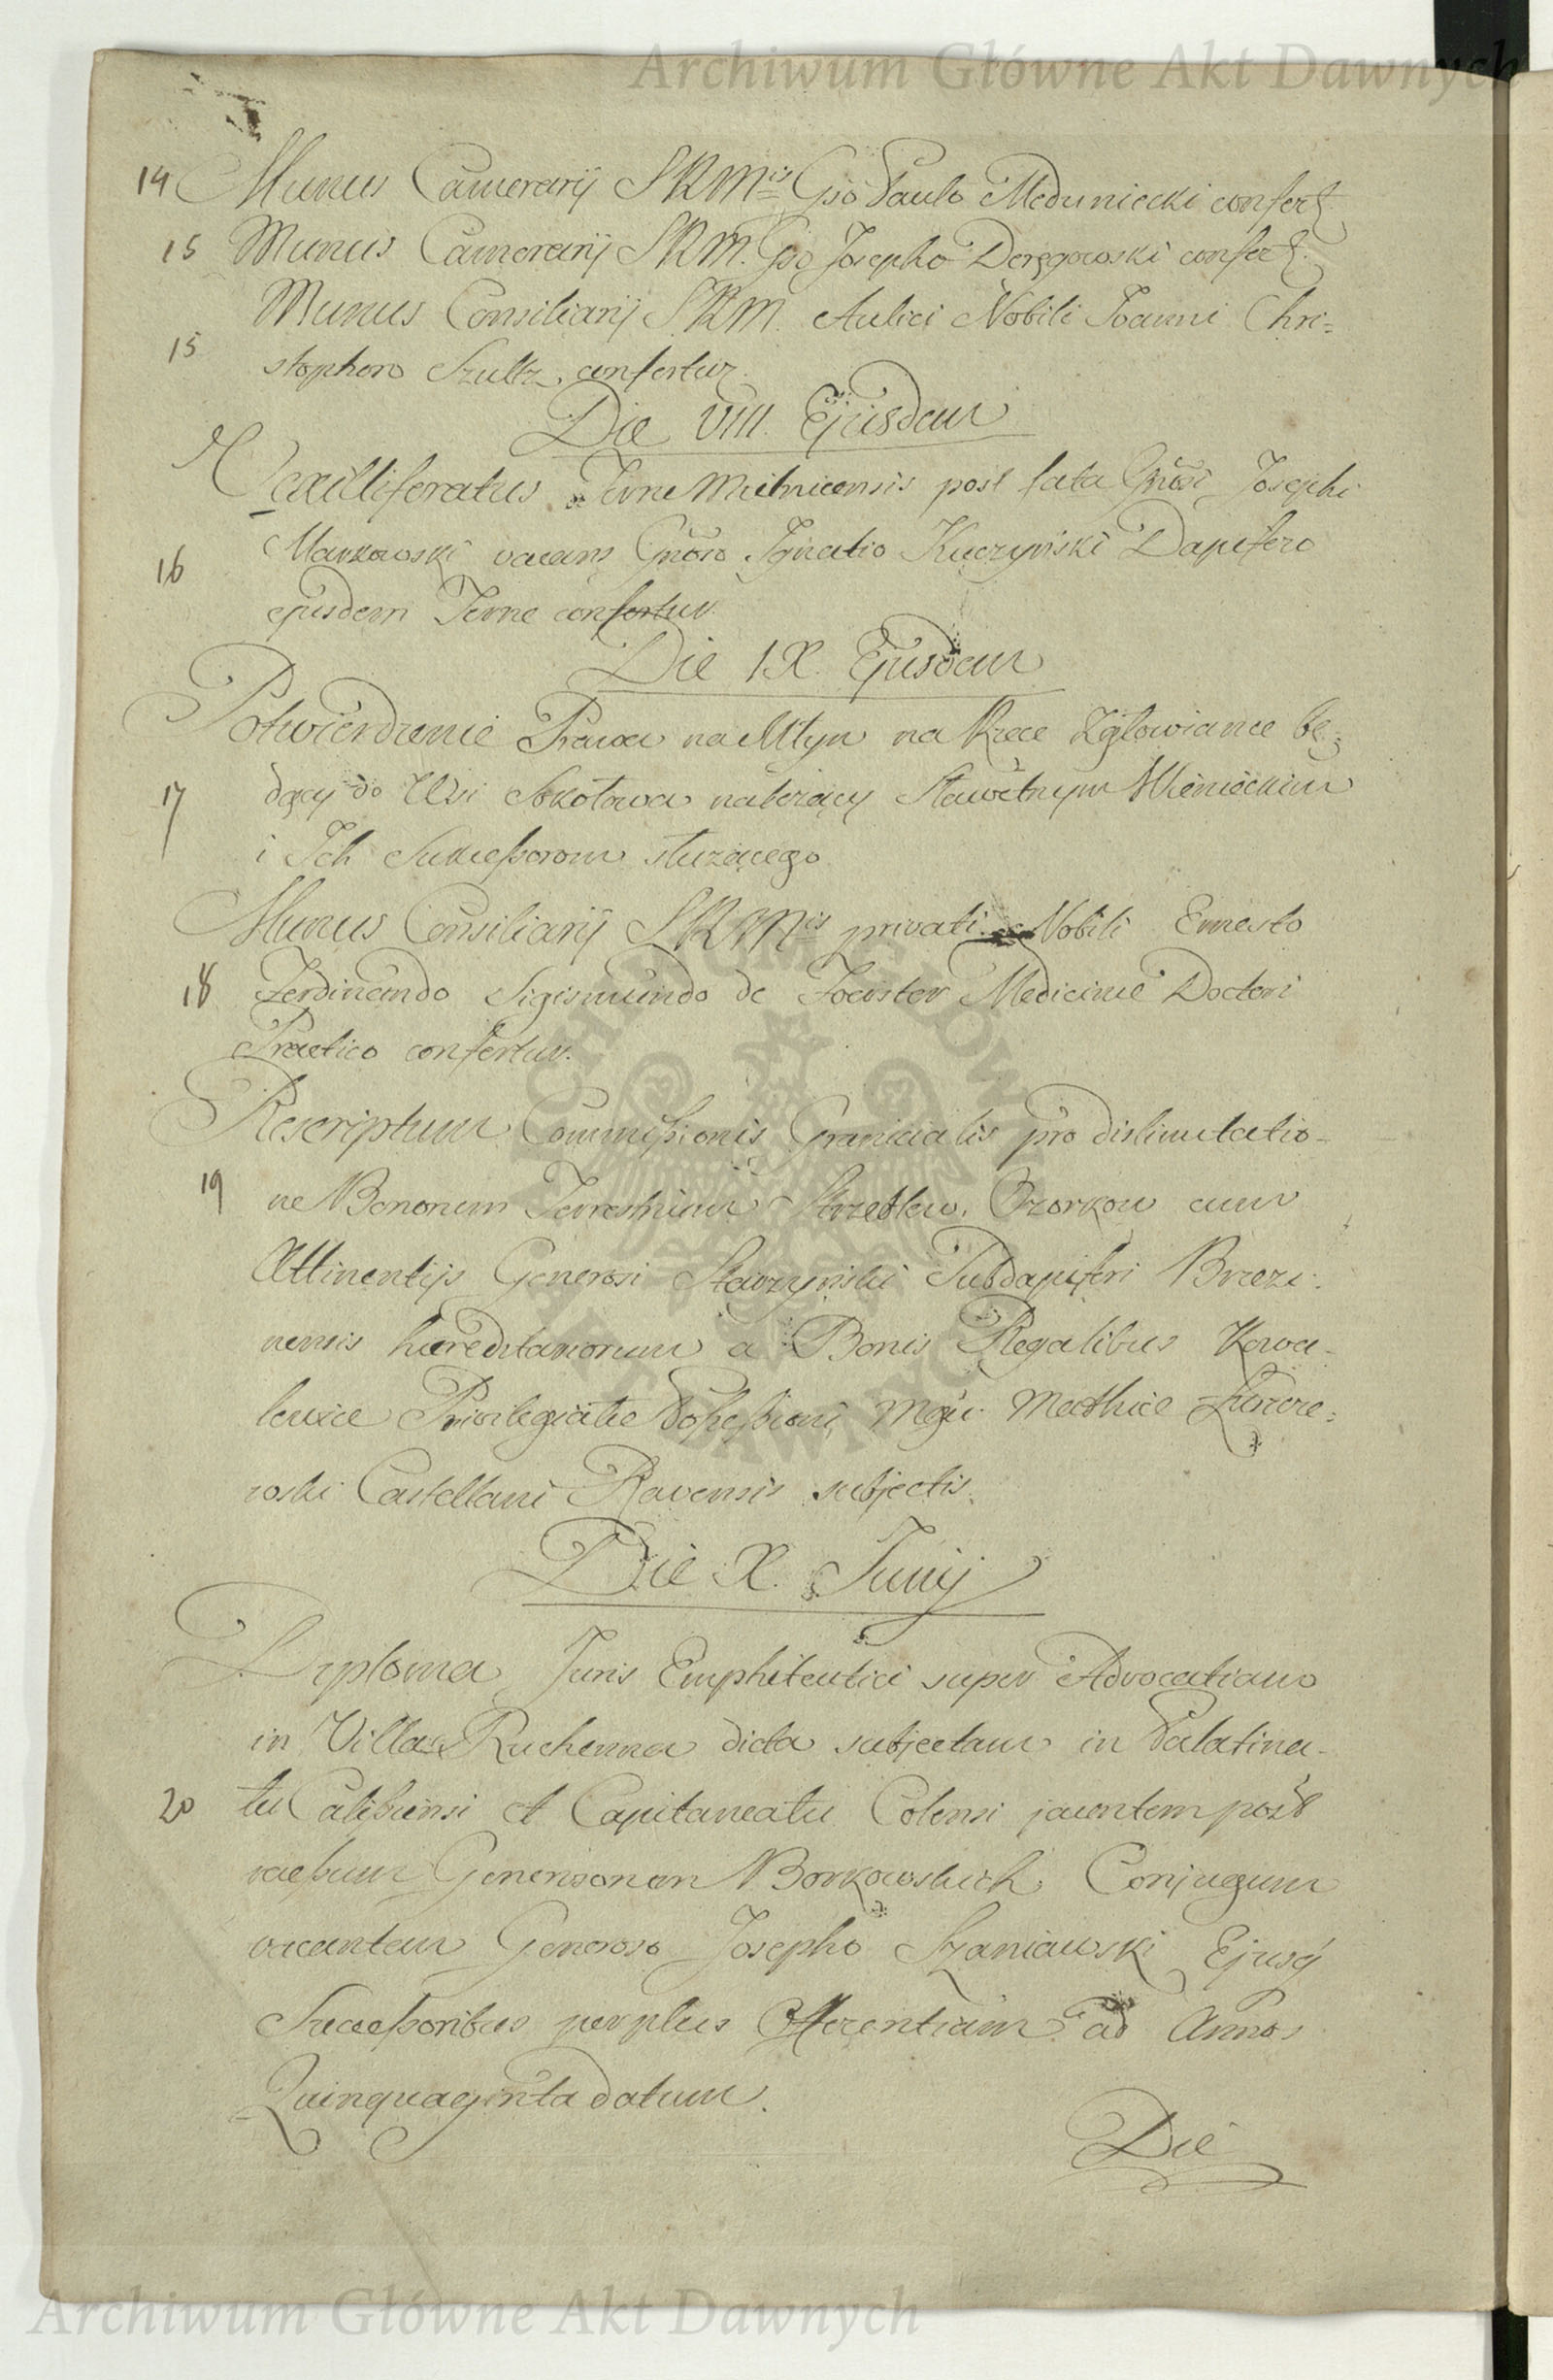 Archiwum Główne Akt Dawnych
14 Munus Camerarij SRMis Gso Paulo Meduniecki confert.
15 Munus Camerarij SRM. Gso Josepho Deręgowski confert.
Munus Consiliarij SRM. Aulici Nobili Joanni Chri=
15 stophoro Szultz confertur.
Die VIII. Ejusdem
Vexilliferatus Terrae Mielnicensis post fata Gnosi Josephi
16 Markowski vacans Gnoso Ignatio Kuczyński Dapifero
ejusdem Terrae confertur.
Die IX. Ejusdem
Potwierdzenie Prawa na Młyn na Rzece Zgłowiance bę=
17 dący do Wsi Sokołowa należący Sławetnym
i Ich Sukcessorom służącego.
Munus Consiliarij SRMis privati Nobili Ernesto
18 Ferdinando Sigismundo de Medicinae Doctori
Practico confertur.
Rescriptum Commissionis Granicialis pro dislimitatio-
19 ne Bonorum Terrestrium Ozorkow cum
Attinentijs Generosi Starzyński Subdapiferi Brzezi-
nensis haereditariorum a Bonis Regalibus Kowa-
lewice Privilegiatae Possessioni Mgci Mathiae
Castellani Ravensis subjectis.
Die X. Junij
Diploma Juris Emphiteutici super Advocatiam
in Villa Ruchenna dicta subjectam in Palatina-
20 tu Calissiensi et Capitaneatu Colensi jacentem post
recessum Generosorum Borkowskich Conjugum
vacantem Generoso Josepho Szaniawski Ejusq
Successoribus per plus Offerentiam ad Annos
Quinquaginta datum.
Die
Archiwum Główne Akt Dawnych